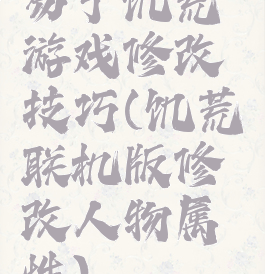 助手饥荒
游戏修改
技巧(饥荒
联机版修
改人物属
性)